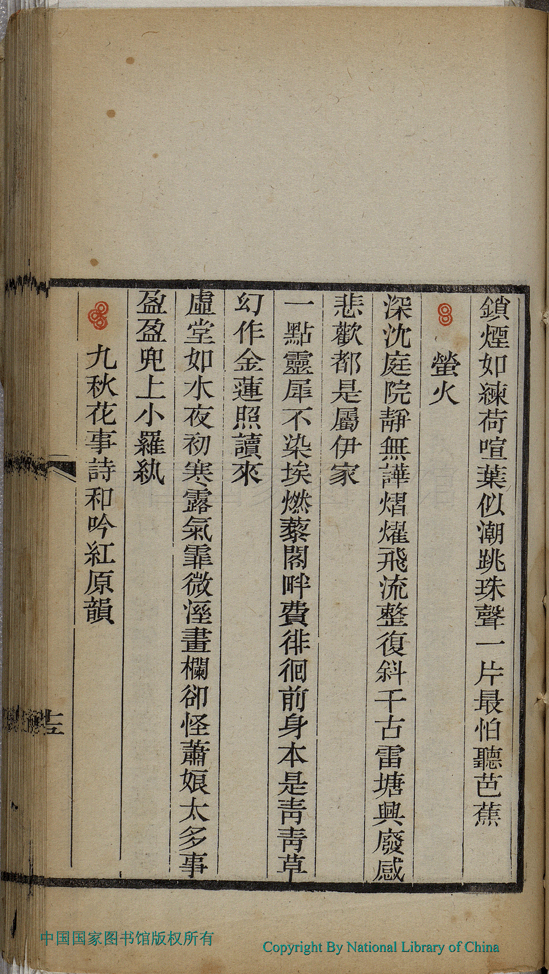 鎖煙如練荷喧葉似潮跳珠聲一片最怕聽芭蕉
螢火
深沈庭院靜無譁熠燿飛流整復斜千古雷塘興廢感
悲歡都是屬伊家
一點靈犀不染埃燃藜閣畔費徘徊前身本是靑靑草
幻作金蓮照讀來
虛堂如水夜初寒露氣霏微溼畫欄卻怪蕭娘太多事
盈盈兜上小羅紈
九秋花事詩和吟紅原韻
中国国家图书馆版权所有
Copyright By National Library of China